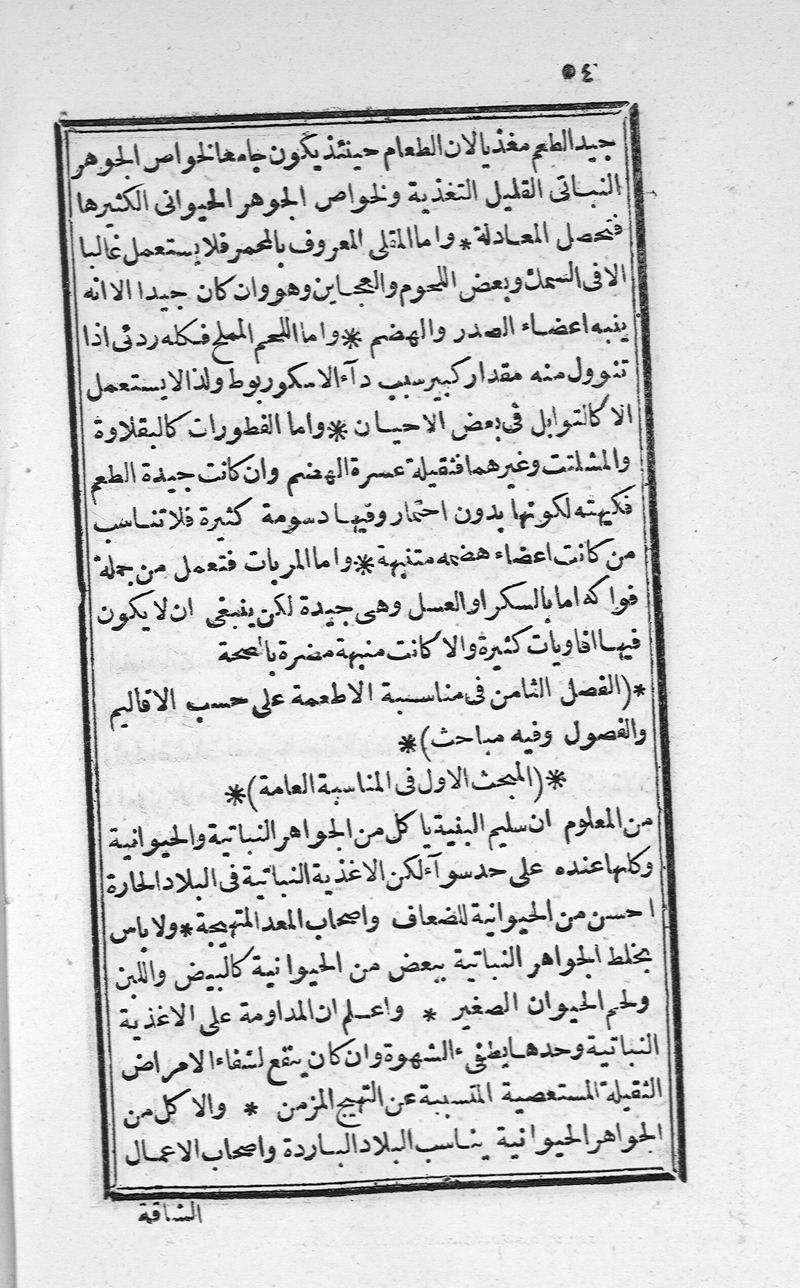 ٥٤
جيد الطعم مغذيا لان الطعام حينئذ يكون جامعا لخواص الجوهر
النباتى القليل التغذية ولخواص الجوهر الحيوانى الكثيرها
فتحصل المعادلة * واما المقلى المعروف بالمحمر فلا يستعمل غالبا
الا فى السمك وبعض اللحوم والعجاين وهو وان كان جيدا الا انه
ينبه اعضاء الصدر والهضم * واما اللحم المملح فكله ردئى اذا
تنوول منه مقدار كبير سبب دآء الاسكوربوط ولذا لا يستعمل
الا كالتوابل فى بعض الاحيان * واما الفطورات كالبقلاوة
والمشلتت وغيرهما فثقيلة عسرة الهضم وان كانت جيدة الطعم
فكيهته لكونها بدون اختمار وفيها دسومة كثيرة فلا تناسب
من كانت اعضاء هضمه متنبهة * واما المربات فتعمل من جملة
فواكه اما بالسكر او العسل وهى جيدة لكن ينبغى ان لا يكون
فيها افاويات كثيرة والا كانت منبهة مضرة بالصحة
* (الفصل الثامن فى مناسبة الاطعمة على حسب الاقاليم
والفصول وفيه مباحث) *
* (المبحث الاول فى المناسبة العامة) *
من المعلوم ان سليم البنية ياكل من الجواهر النباتية والحيوانية
وكلها عنده على حد سوآء لكن الاغذية النباتية فى البلاد الحارة
احسن من الحيوانية للضعاف واصحاب المعد المتهيجة * ولا باس
بخلط الجواهر النباتية ببعض من الحيوانية كالبيض واللبن
ولحم الحيوان الصغير * واعلم ان المداومة على الاغذية
النباتية وحدها يطفىء الشهوة وان كان ينفع لشفاء الامراض
الثقيلة المستعصية المتسببة عن التهيج المزمن * والاكل من
الجواهر الحيوانية يناسب البلاد الباردة واصحاب الاعمال
الشاقة